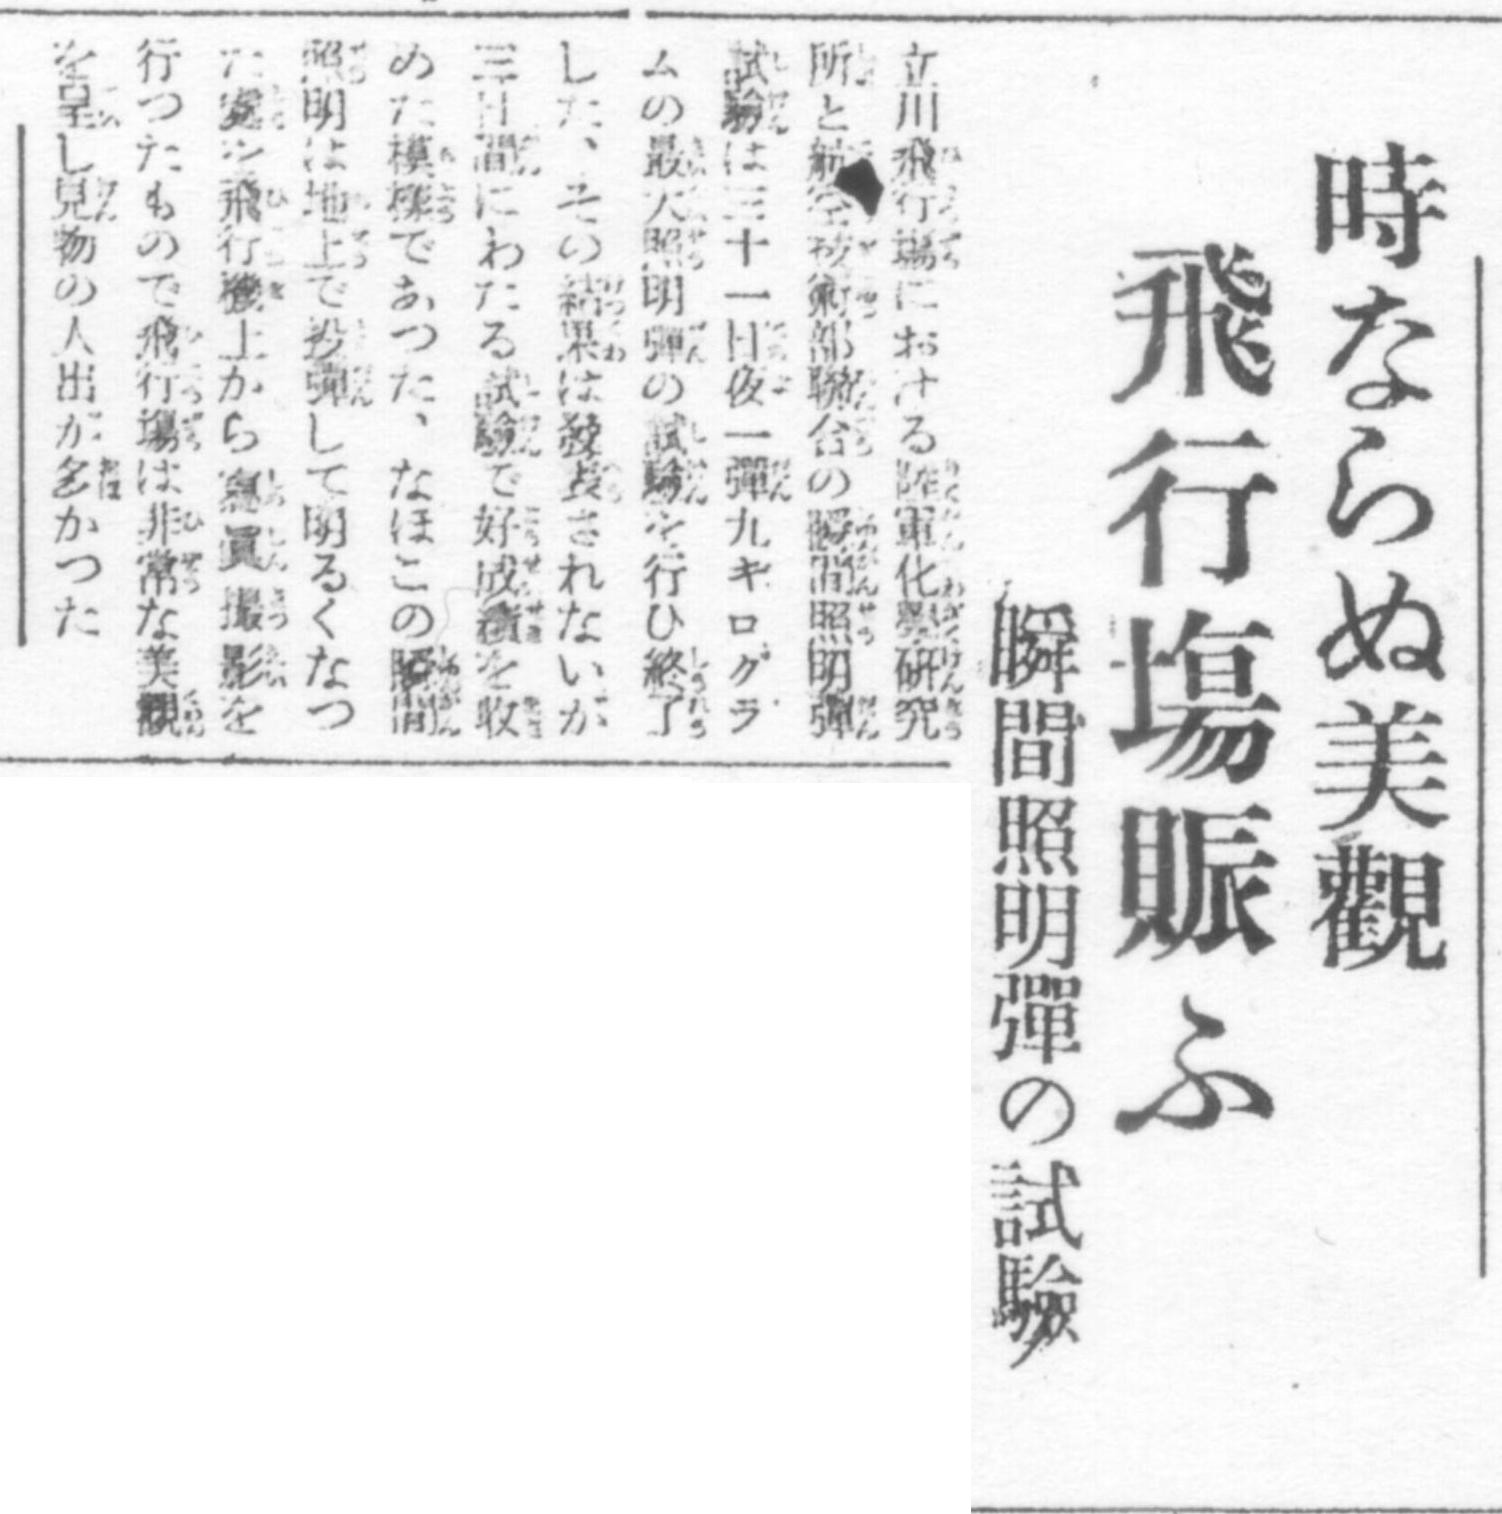 時ならぬ美觀
飛行場賑ふ
瞬間照明彈の試驗
立川飛行場における陸軍化學研究
所と航空技術部聯合の瞬間照明彈
試驗は三十一日夜一彈九キログラ
ムの最大照明彈の試驗を行ひ終了
した、その結果は發表されないが
三日間にわたる試驗で好成績を收
めた模樣であつた、なほこの瞬間
照明は地上で投彈して明るくなつ
た處を飛行機上から寫眞撮影を
行つたもので飛行場は非常な美觀
を呈し見物の人出が多かつた